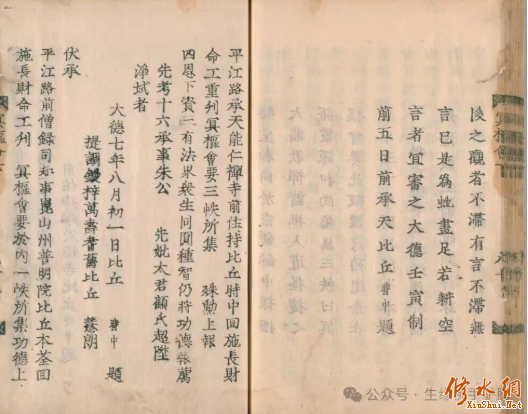 後之觀者不滯有言不滯無
言已是為蛇畫足若斬空
言者宜審之大德壬寅制
前五日前承天比丘 普中 題
平江路承天能仁禪寺前住持比丘時中回施長財
命工重刋冥樞會要三帙所集 殊勳上報
四恩下資三有法界衆生同圓種智仍將功德報薦
先考十六承事朱公 先妣太君顧氏超陞
淨域者
大德七年八月初一日比丘 普中 題
提調鋟梓萬壽耆舊比丘 慧朗
伏承
平江路前僧録司知事崑山州普明院比丘本荃回
施長財命工刋 冥樞會要於內一帙所集功德上
冥樞會
公众号·生
修水网
XiuShui.Net